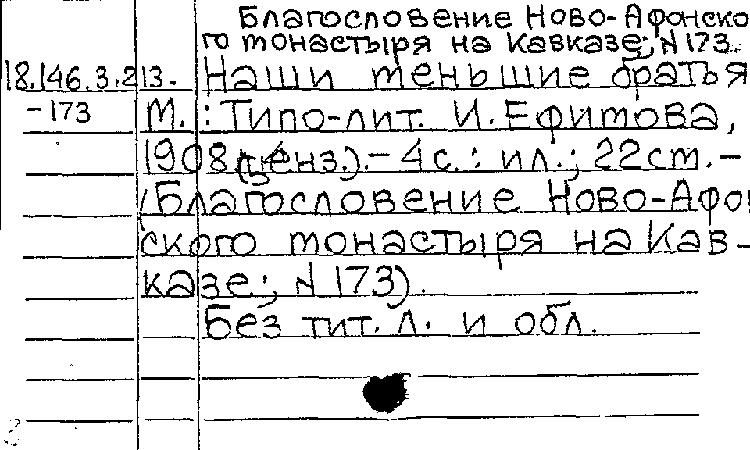 Благословение Ново-Афонско
го монастыря на Кавказе; N 173.
18.146.3.213. Наши меньшие братья
-173 М.: Типо-лит. И. Ефимова,
1908 (ценз.). - 4 с.: ил.; 22 cm. -
(Благословение Ново-Афон
ского монастыря на Кав-
казе; N 173).
Без тит. л. и обл.